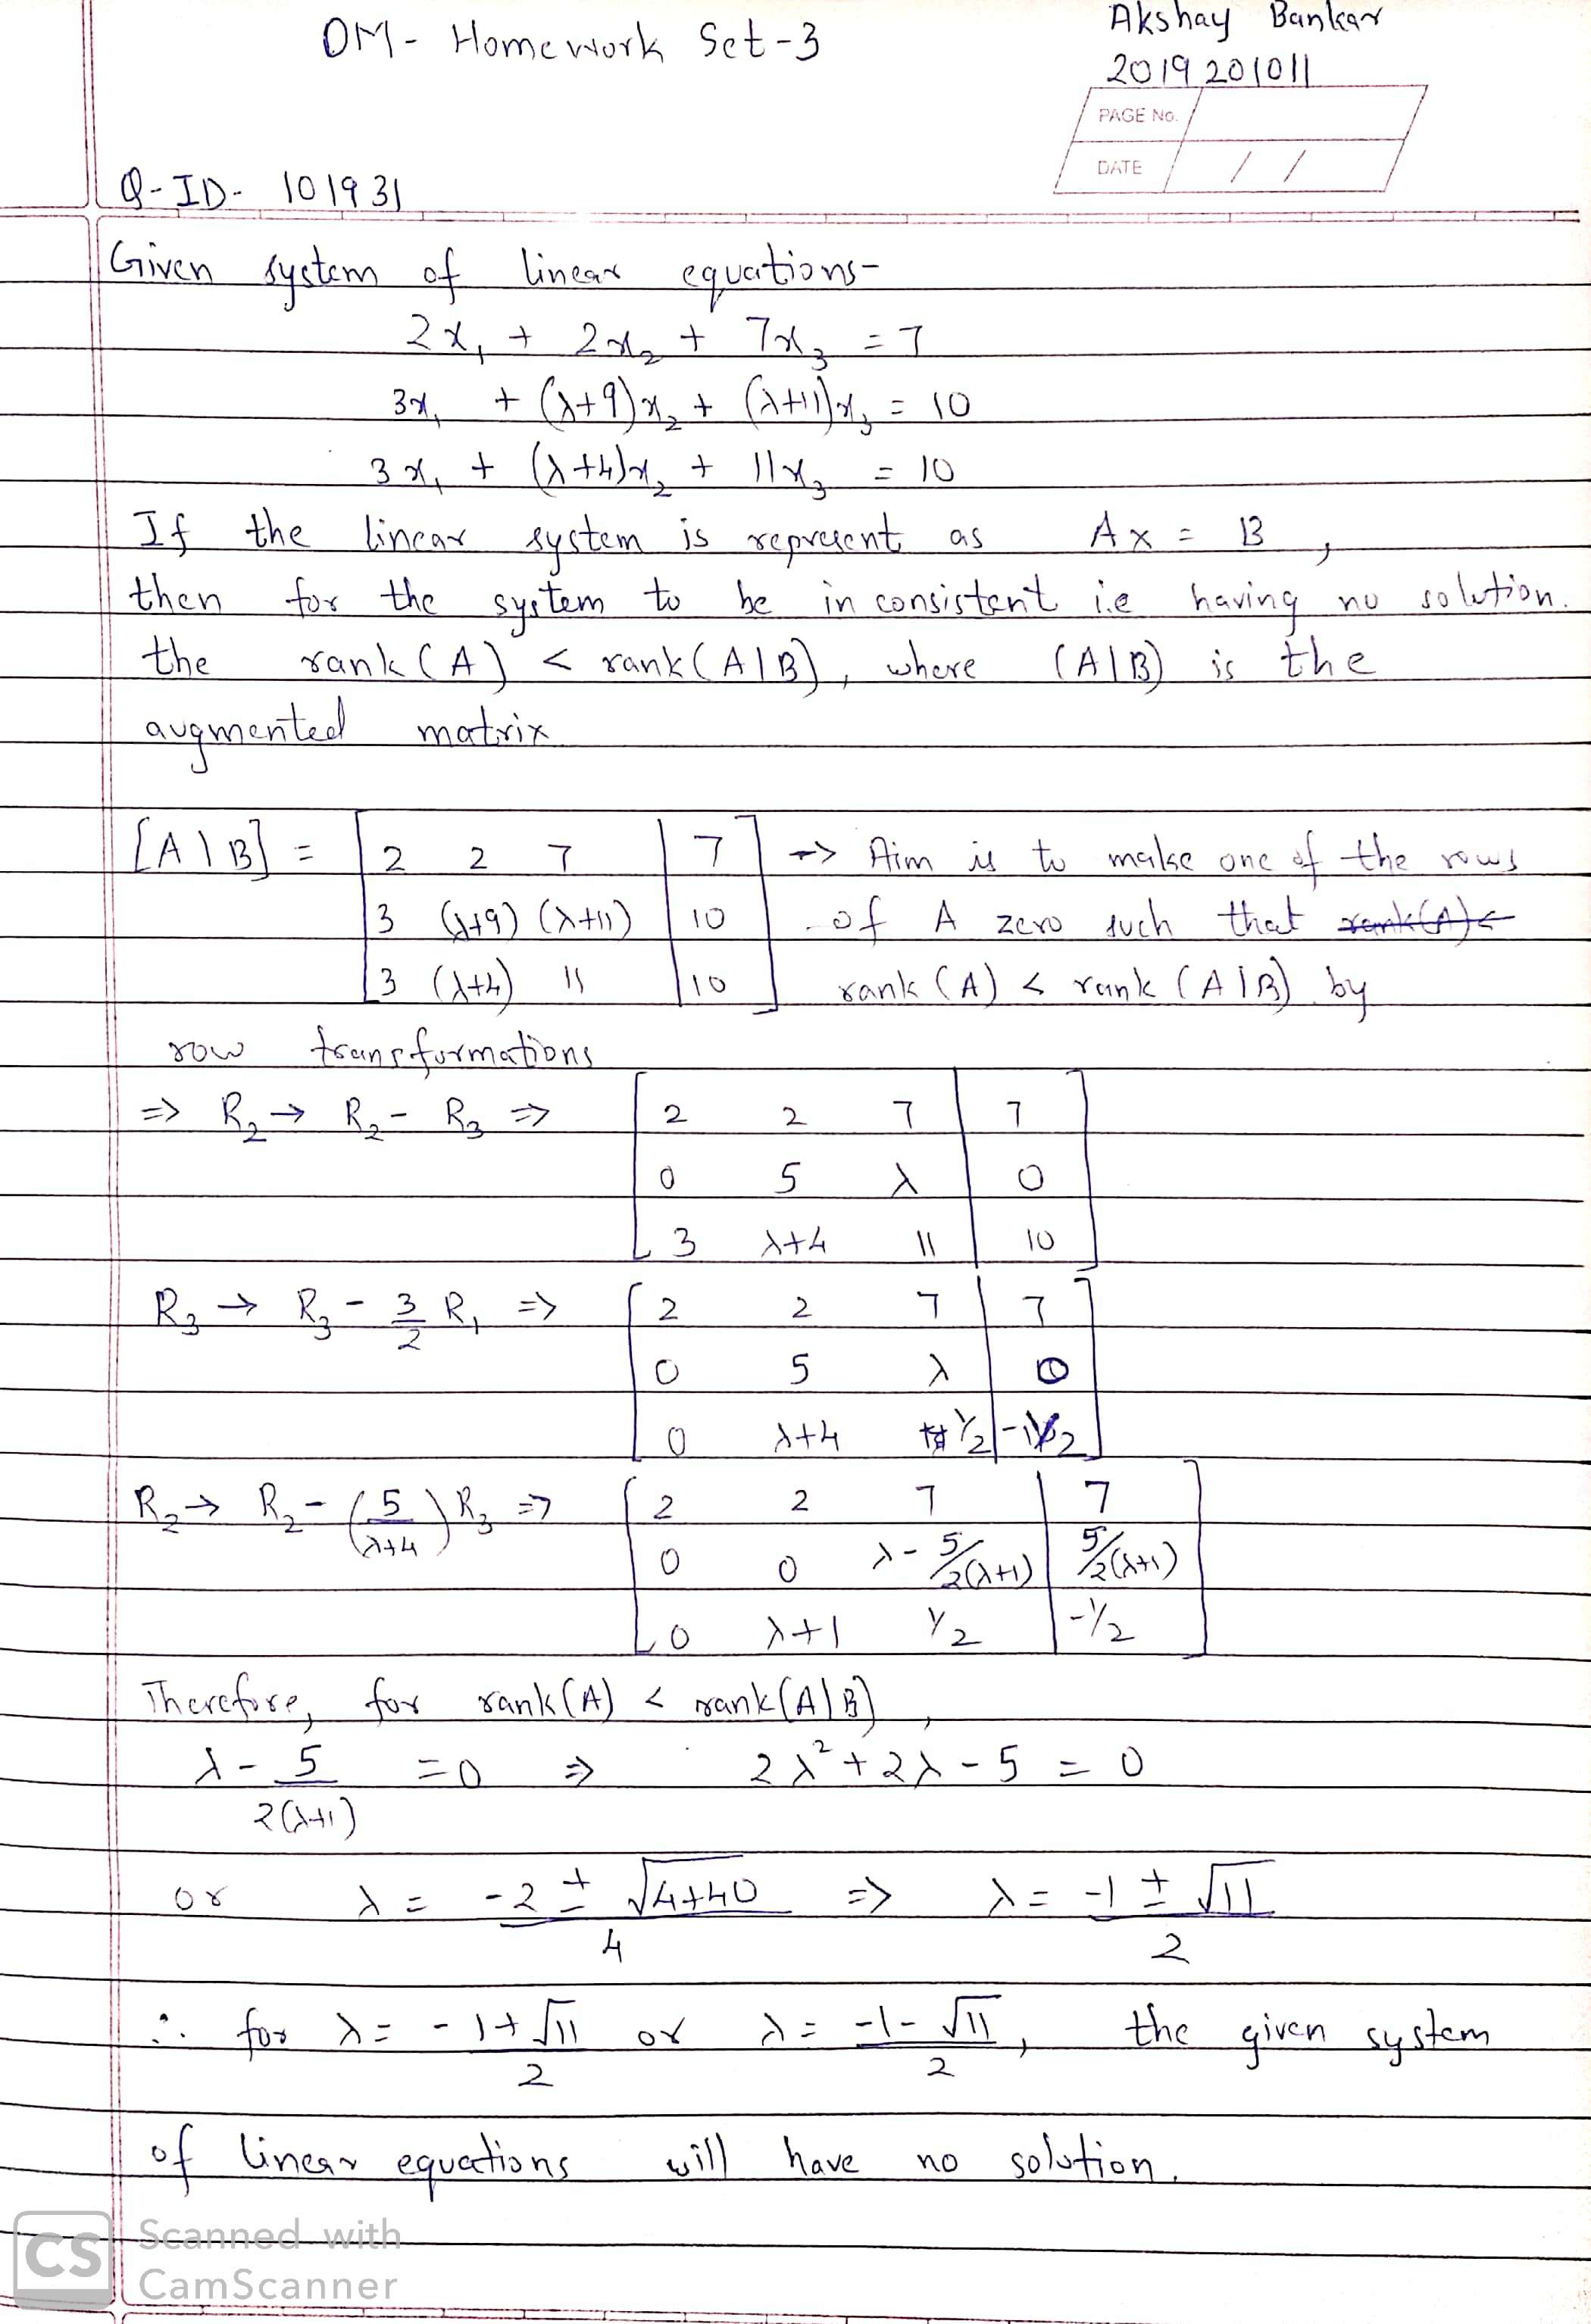 OM- Homework Set-3
Akshay Bankar
2019201011
PAGE No.
DATE / /
Q-ID- 101931
Given system of linear equations-
2x₁ + 2x₂ + 7x₃ = 7
3x₁ + (λ+9)x₂ + (λ+11)x₃ = 10
3x₁ + (λ+4)x₂ + 11x₃ = 10
If the linear system is represent as Ax = B ,
then for the system to be inconsistent i.e having no solution.
the rank(A) < rank(A|B), where (A|B) is the
augmented matrix
[A|B] = [2 2 7 | 7] → Aim is to make one of the rows
3 (λ+9) (λ+11) | 10 of A zero such that rank(A)<
3 (λ+4) 11 | 10 rank(A) < rank(A|B) by
row transformations
⇒ R₂ → R₂ - R₃ ⇒ [2 2 7 | 7
0 5 λ | 0
3 λ+4 11 | 10]
R₃ → R₃ - 3/2 R₁ ⇒ [2 2 7 | 7
0 5 λ | 0
0 λ+4 1/2 | -1/2]
R₂ → R₂ - (5/λ+4) R₃ ⇒ [2 2 7 | 7
0 0 λ - 5/2(λ+1) | 5/2(λ+1)
0 λ+1 1/2 | -1/2]
Therefore, for rank(A) < rank(A|B) ,
λ - 5/2(λ+1) = 0 ⇒ 2λ² + 2λ - 5 = 0
or λ = -2 ± √4+40 / 4 ⇒ λ = -1 ± √11 / 2
∴ for λ = -1+√11 / 2 or λ = -1-√11 / 2 , the given system
of linear equations will have no solution.
CS Scanned with
CamScanner